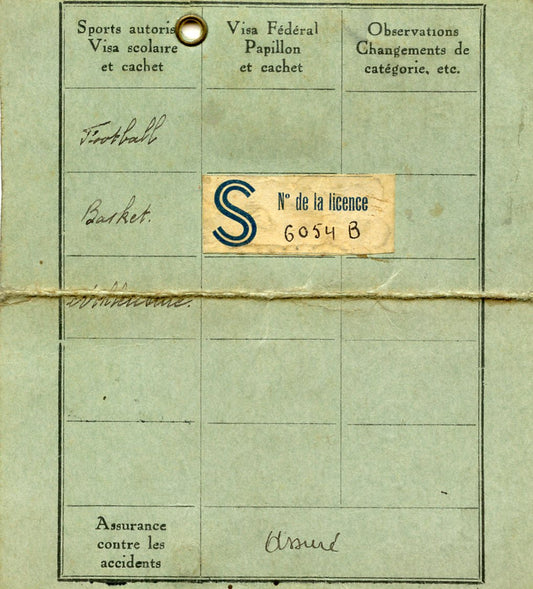 Sports autoris
Visa scolaire
et cachet
Visa Fédéral
Papillon
et cachet
Observations
Changements de
catégorie, etc.
Football
Basket.
S
N° de la licence
6054 B
Assurance
contre les
accidents
Assuré